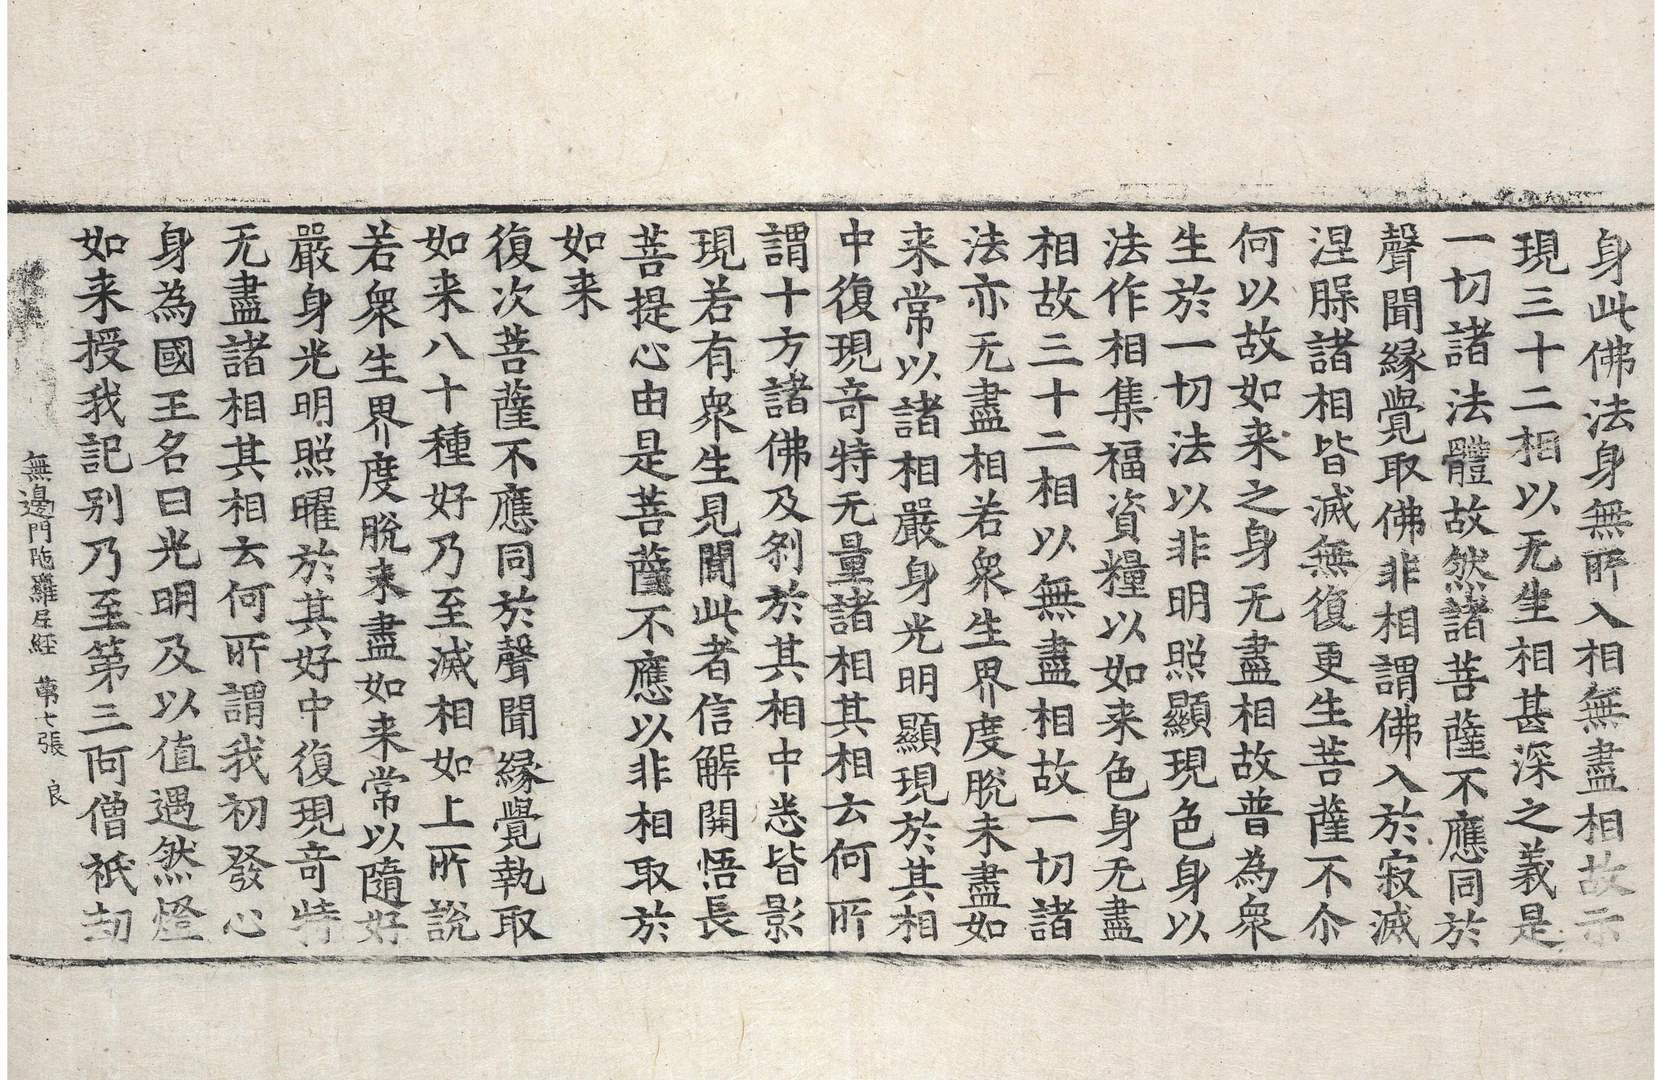 身此佛法身無所入相無盡相故示
現三十二相以无生相甚深之義是
一切諸法體故然諸菩薩不應同於
聲聞縁覺取佛非相謂佛入於寂滅
涅槃諸相皆滅無復更生菩薩不尒
何以故如来之身无盡相故普為衆
生於一切法以非明照顯現色身以
法作相集福資糧以如来色身无盡
相故三十二相以無盡相故一切諸
法亦无盡相若衆生界度脫未盡如
来常以諸相嚴身光明顯現於其相
中復現竒特无量諸相其相云何所
謂十方諸佛及刹於其相中悉皆影
現若有衆生見聞此者信解開悟長
菩提心由是菩薩不應以非相取於
如来
復次菩薩不應同於聲聞縁覺執取
如来八十種好乃至滅相如上所說
若衆生界度脫未盡如来常以隨好
嚴身光明照曜於其好中復現竒特
无盡諸相其相云何所謂我初發心
身為國王名曰光明及以值遇然燈
如来授我記别乃至第三阿僧祇劫
無邊門陁羅尼経 苐七張 良